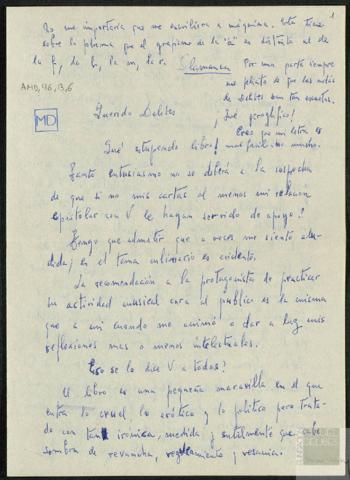 No me importaría que me escribiera a máquina. Esto tiene
1
sobre la pluma que el grafismo de la "a" es distinto al de
la f, la h, la m, la r. Salamanca
Por una parte siempre
me de que las cartas
de Delibes sean tan escuetas.
¡Qué jeroglífico!
Creo que mi letra es
más fácil mucho.
AMD,46,13,6
MD
Querido Delibes
¡Qué estupendo libro!
Tanto entusiasmo no se deberá a la sospecha
de que si no mis cartas al menos mi relación
epistolar con V le hayan servido de apoyo?
Tengo que admitir que a veces me siento alu-
dida; en el tema culinario es evidente.
La recomendación a la protagonista de practicar
su actividad musical cara al público es la misma
que a mí cuando me animó a dar a luz mis
reflexiones mas o menos intelectuales.
Eso se lo dice V a todas?
El libro es una pequeña maravilla en el que
entra lo cruel, lo erótico y lo político pero trata-
do con tan irónica, medida y sutilmente que cabe
sombra de revancha, y